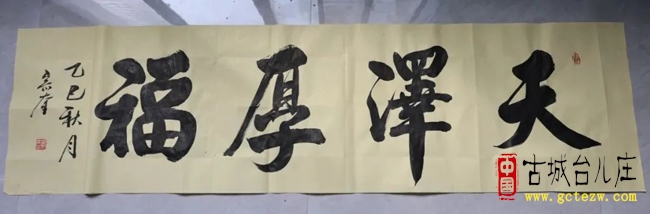 天澤厚福
乙巳秋月
中国
古城台儿庄
www.gctezw.com